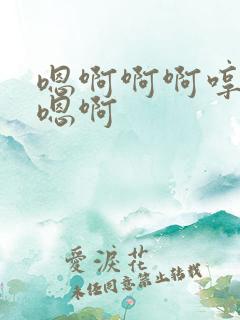 嗯啊啊啊哼
嗯啊
愛淚花
未经同意禁止转载